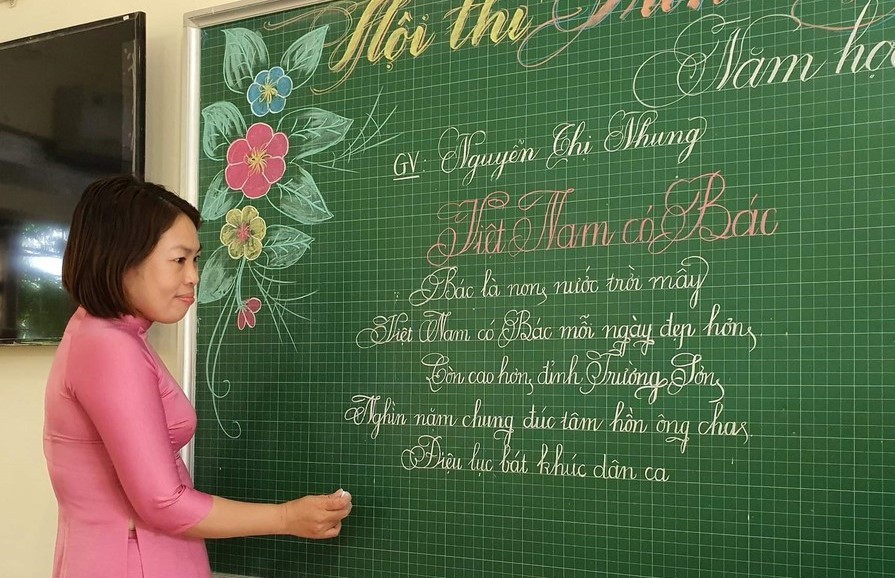 Hội thi
Năm học
GV: Nguyễn Thị Nhung
Việt Nam có Bác
Bác là non nước trời mây
Việt Nam có Bác mỗi ngày đẹp hơn
Còn cao hơn đỉnh Trường Sơn
Nghìn năm chung đúc tâm hồn ông cha
Điệu lục bát khúc dân ca